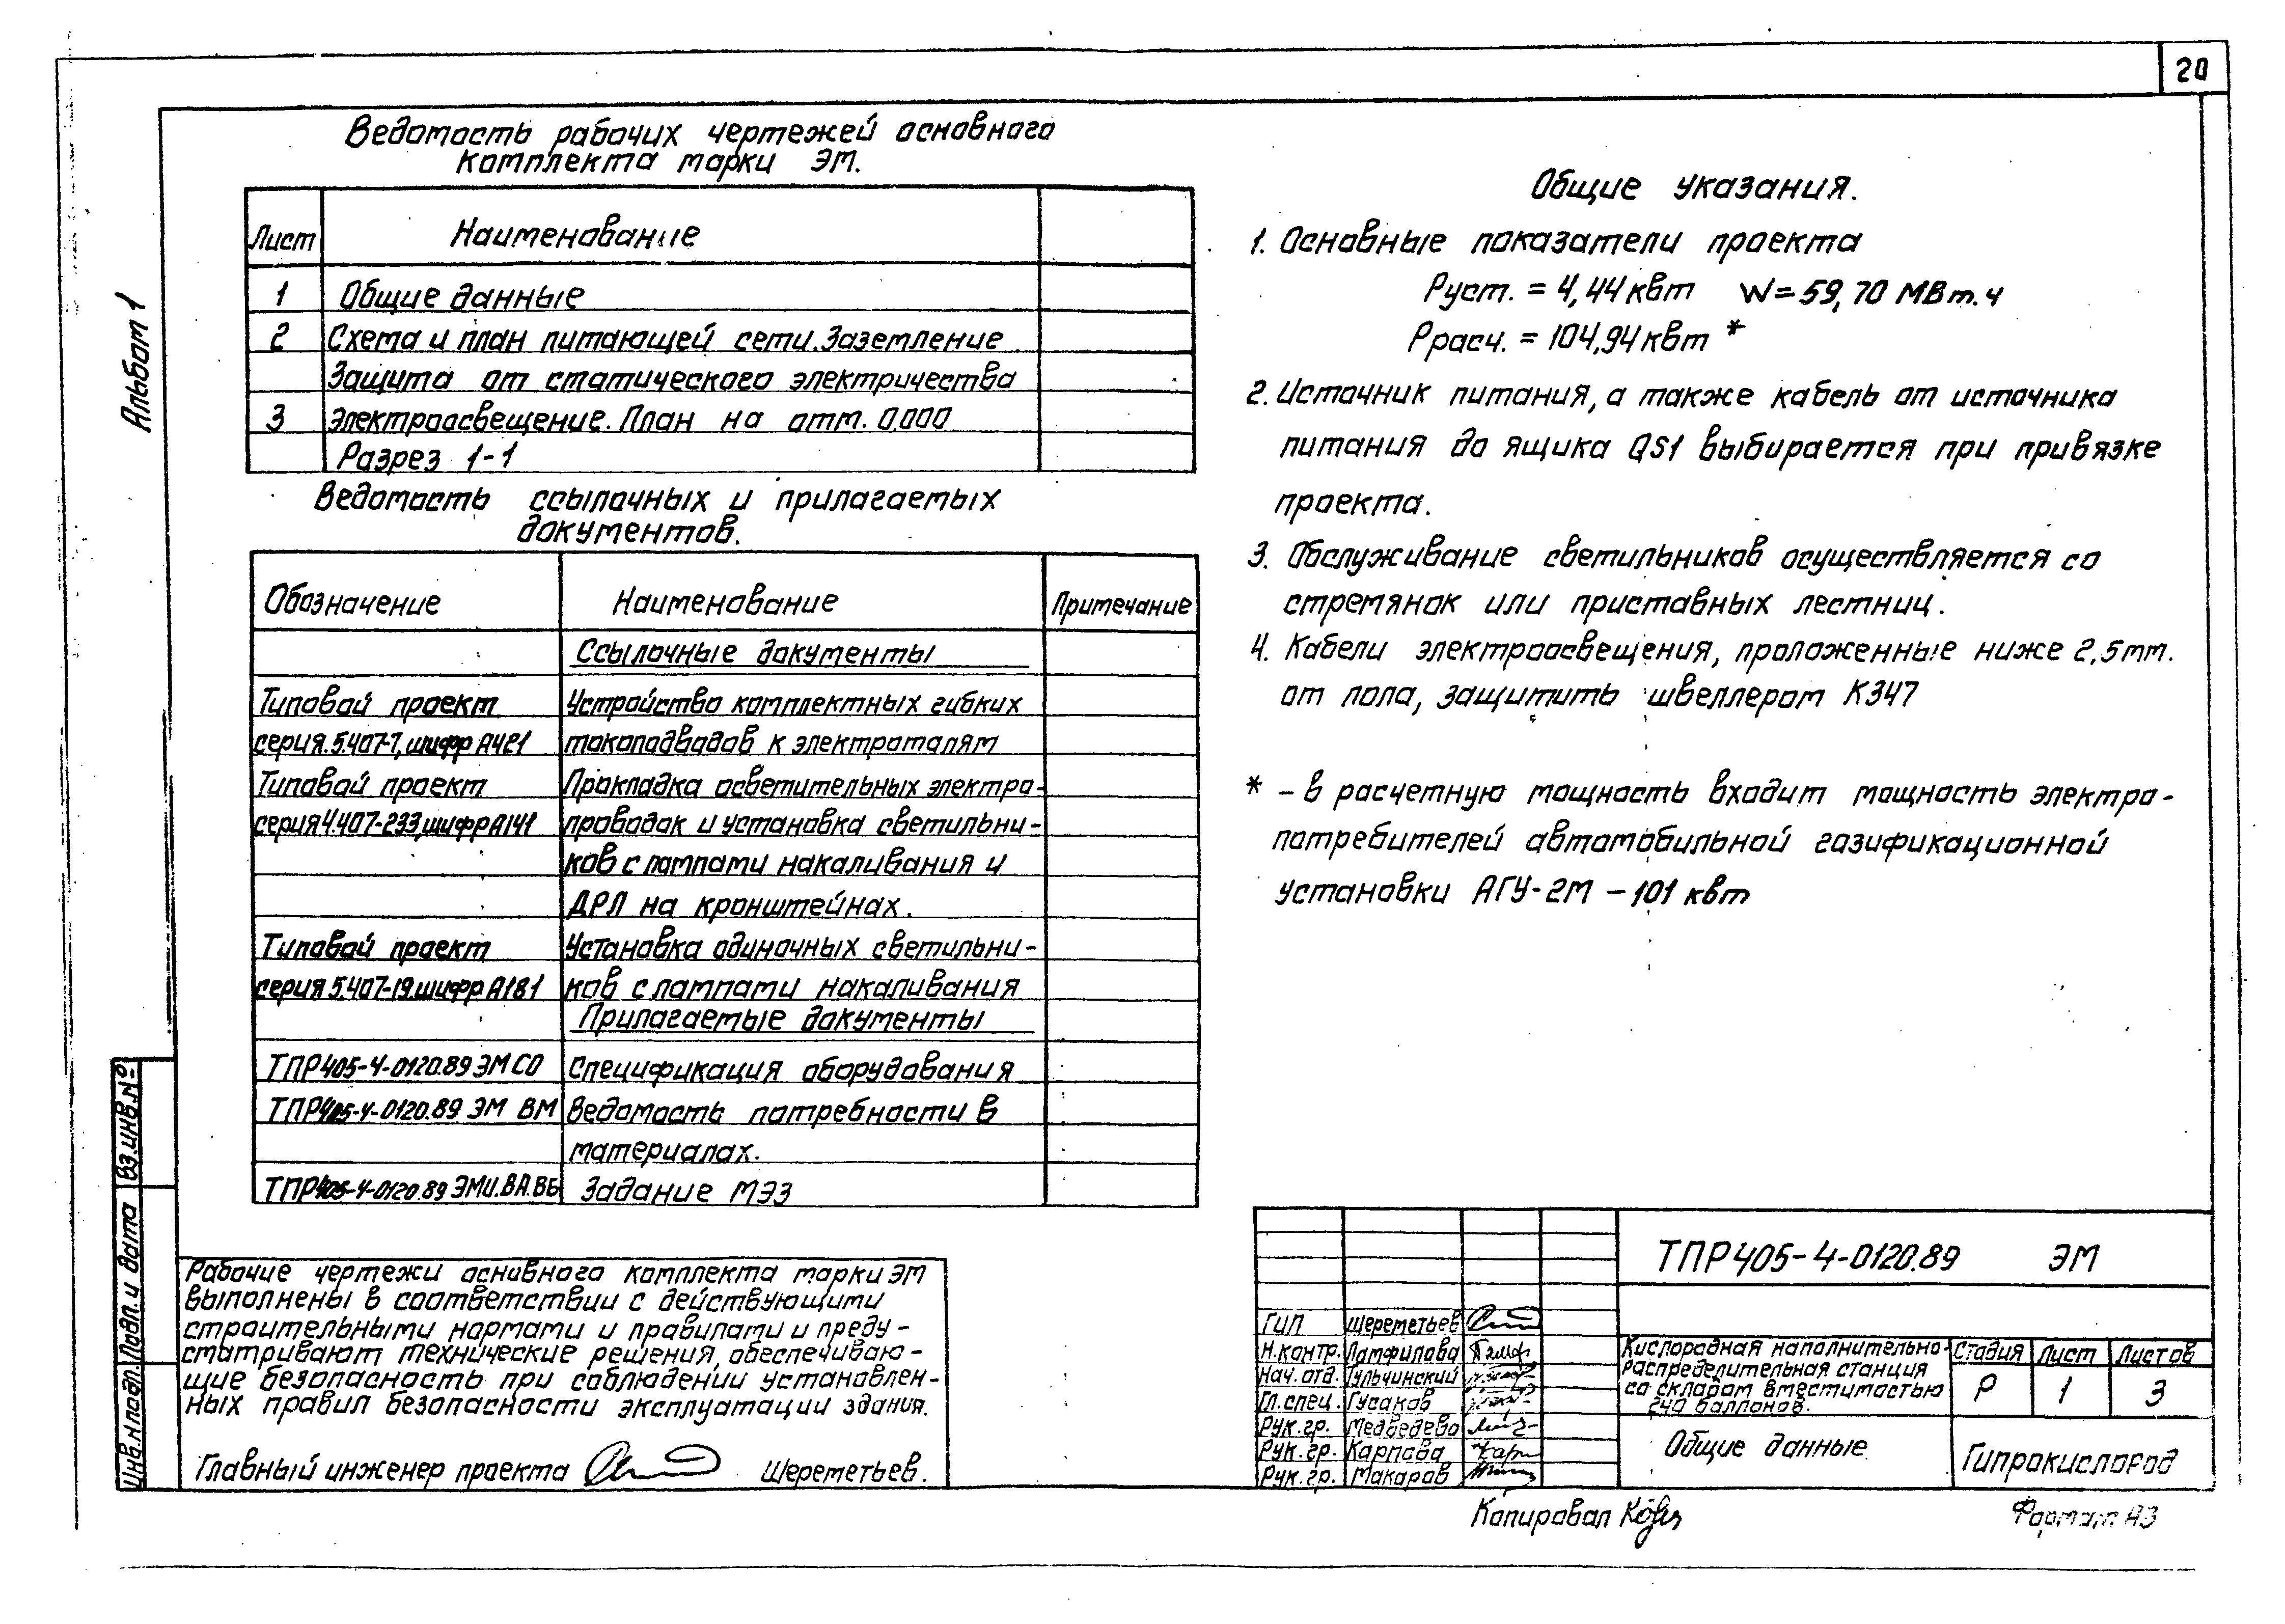 20
Альбом 1
Ведомость рабочих чертежей основного
комплекта марки ЭМ.
Лист Наименование
1 Общие данные
2 Схема и план питающей сети. Заземление
Защита от статического электричества
3 Электроосвещение. План на отм. 0.000
Разрез 1-1
Ведомость ссылочных и прилагаемых
документов.
Обозначение Наименование Примечание
Ссылочные документы
Типовой проект Устройство комплектных гибких
серия.5.407-7, шифр А421 токоподводов к электроталям
Типовой проект Прокладка осветительных электро-
серия 4.407-233, шифр А141 проводок и установка светильни-
ков с лампами накаливания и
ДРЛ на кронштейнах.
Типовой проект Установка одиночных светильни-
серия 5.407-19. шифр А181 ков с лампами накаливания
Прилагаемые документы
ТПР 405-4-0120.89 ЭМ СО Спецификация оборудования
ТПР 405-4-0120.89 ЭМ ВМ Ведомость потребности в
материалах.
ТПР 405-4-0120.89 ЭМИ.ВА.ВБ Задание МЭЗ
Рабочие чертежи основного комплекта марки ЭМ
выполнены в соответствии с действующими
строительными нормами и правилами и преду-
сматривают технические решения, обеспечиваю-
щие безопасность при соблюдении установлен-
ных правил безопасности эксплуатации здания.
Главный инженер проекта Шереметьев.
Общие указания.
1. Основные показатели проекта
Руст. = 4,44 квт W = 59,70 МВт. ч
Ррасч. = 104,94 квт *
2. Источник питания, а также кабель от источника
питания до ящика QS1 выбирается при привязке
проекта.
3. Обслуживание светильников осуществляется со
стремянок или приставных лестниц.
4. Кабели электроосвещения, проложенные ниже 2,5мм.
от пола, защитить швеллером К347
* - в расчетную мощность входит мощность электро-
потребителей автомобильной газификационной
установки АГУ-2М - 101 квт
ТПР 405-4-0120.89 ЭМ
ГИП Шереметьев
Н.контр. Памфилова
Нач. отд. Тульчинский
Гл. спец. Гусаков
Рук. гр. Медведева
Рук. гр. Карпова
Рук. гр. Макаров
Кислородная наполнительно-
распределительная станция
со складом вместимостью
240 баллонов.
Стадия Лист Листов
Р 1 3
Общие данные
Гипрокислород
Копировал
Формат А3
Инв.N подл. Подп. и дата Вз.инв.№